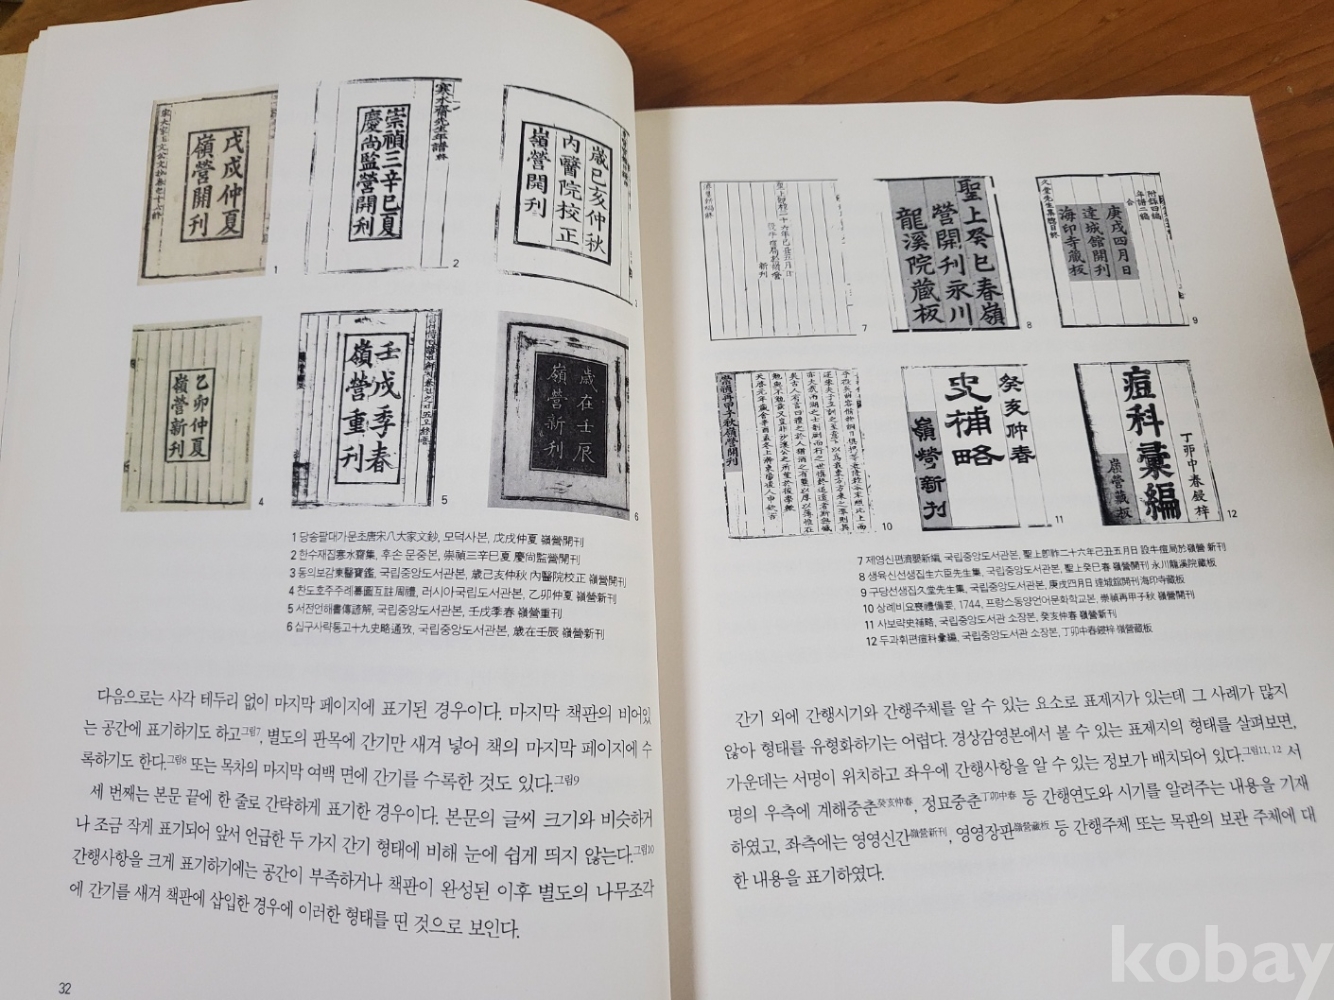 戊戌仲夏
嶺營開刊
1
寒水齋先生年譜終
崇禎三辛巳夏
慶尚監營開刊
2
歲己亥仲秋
內醫院校正
嶺營開刊
乙卯仲夏
嶺營新刊
4
壬戌季春
嶺營重刊
5
歲在壬辰
嶺營新刊
6
1 당송팔대가문초唐宋八大家文鈔, 모덕사본, 戊戌仲夏 嶺營開刊
2 한수재집寒水齋集, 후손 문중본, 崇禎三辛巳夏 慶尚監營開刊
3 동의보감東醫寶鑑, 국립중앙도서관본, 歲己亥仲秋 內醫院校正 嶺營開刊
4 찬도호주주례纂圖互註周禮, 러시아국립도서관본, 乙卯仲夏 嶺營新刊
5 서전언해書傳諺解, 국립중앙도서관본, 壬戌季春 嶺營重刊
6 십구사략통고十九史略通攷, 국립중앙도서관본, 歲在壬辰 嶺營新刊
다음으로는 사각 테두리 없이 마지막 페이지에 표기된 경우이다. 마지막 책판의 비어있
는 공간에 표기하기도 하고그림7, 별도의 판목에 간기만 새겨 넣어 책의 마지막 페이지에 수
록하기도 한다.그림8 또는 목차의 마지막 여백 면에 간기를 수록한 것도 있다.그림9
세 번째는 본문 끝에 한 줄로 간략하게 표기한 경우이다. 본문의 글씨 크기와 비슷하거
나 조금 작게 표기되어 앞서 언급한 두 가지 간기 형태에 비해 눈에 쉽게 띄지 않는다.그림10
간행사항을 크게 표기하기에는 공간이 부족하거나 책판이 완성된 이후 별도의 나무조각
에 간기를 새겨 책판에 삽입한 경우에 이러한 형태를 띤 것으로 보인다.
32
濟嬰新編終
新刊
7
聖上癸巳春嶺
營開刊永川
龍溪院藏板
8
附錄四編
年譜二編
合
庚戌四月日
達城館開刊
海印寺藏板
9
崇禎再甲子秋嶺營開刊
10
癸亥仲春
史補略
嶺營新刊
11
丁卯中春鋟梓
痘科彙編
嶺營藏板
12
7 제영신편濟嬰新編, 국립중앙도서관본, 聖上卽祚二十六年己丑五月日 設牛痘局於嶺營 新刊
8 생육신선생집生六臣先生集, 국립중앙도서관본, 聖上癸巳春 嶺營開刊 永川龍溪院藏板
9 구당선생집久堂先生集, 국립중앙도서관본, 庚戌四月日 達城館開刊 海印寺藏板
10 상례비요喪禮備要, 1744, 프랑스동양언어문화학교본, 崇禎再甲子秋 嶺營開刊
11 사보략史補略, 국립중앙도서관 소장본, 癸亥仲春 嶺營新刊
12 두과휘편痘科彙編, 국립중앙도서관 소장본, 丁卯中春鋟梓 嶺營藏板
간기 외에 간행시기와 간행주체를 알 수 있는 요소로 표제지가 있는데 그 사례가 많지
않아 형태를 유형화하기는 어렵다. 경상감영본에서 볼 수 있는 표제지의 형태를 살펴보면,
가운데는 서명이 위치하고 좌우에 간행사항을 알 수 있는 정보가 배치되어 있다.그림11, 12 서
명의 우측에 계해중춘癸亥仲春, 정묘중춘丁卯中春 등 간행연도와 시기를 알려주는 내용을 기재
하였고, 좌측에는 영영신간嶺營新刊, 영영장판嶺營藏板 등 간행주체 또는 목판의 보관 주체에 대
한 내용을 표기하였다.
kobay